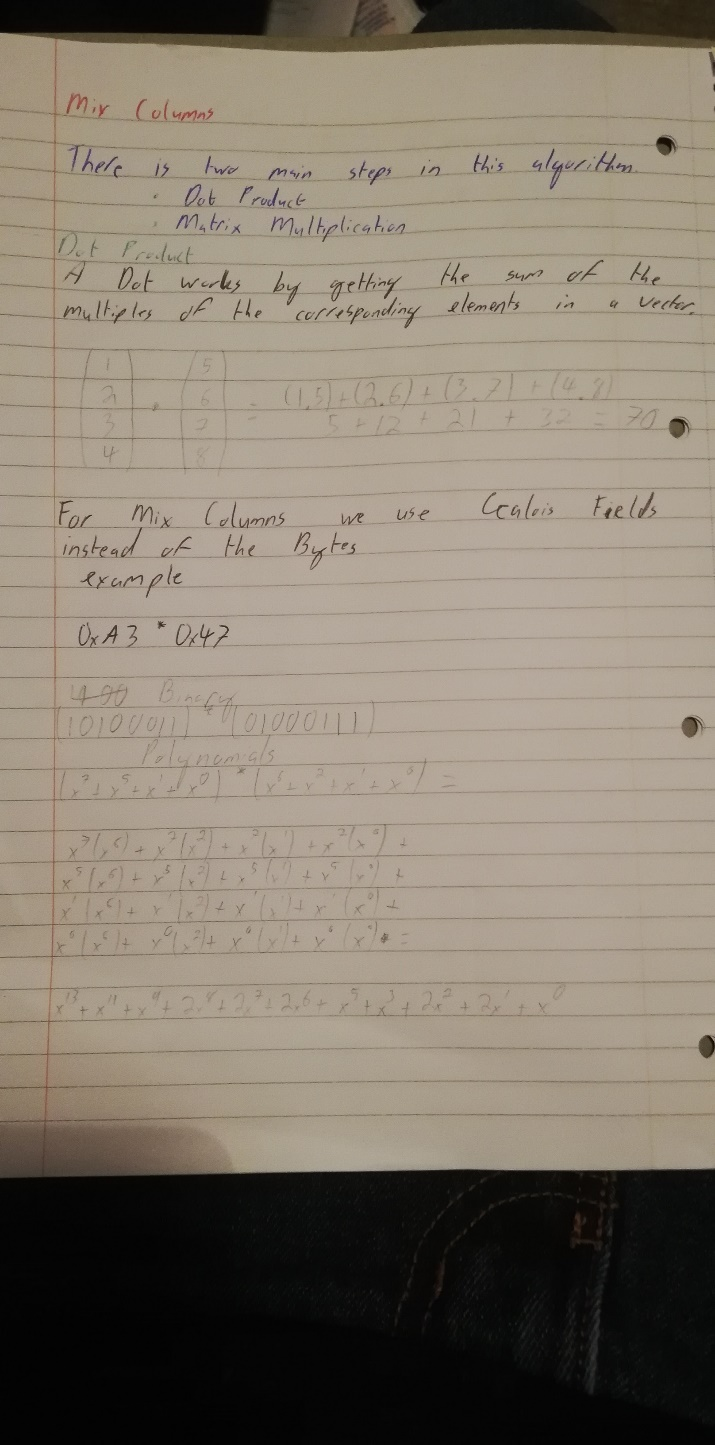 Mix Columns
There is two main steps in this algorithm.
· Dot Product
· Matrix Multiplication
Dot Product
A Dot works by getting the sum of the
multiples of the corresponding elements in a vector.
1 5
2 . 6 = (1.5)+(2.6)+(3.7)+(4.8)
3 7 5+12+21+32=70
4 8
For Mix Columns we use Galois Fields
instead of the Bytes
example
0xA3 * 0x47
Binary
(10100011) * (01000111)
Polynomials
(x⁷+x⁵+x¹+x⁰) * (x⁶+x²+x¹+x⁰) =
x⁷(x⁶)+x⁷(x²)+x⁷(x¹)+x⁷(x⁰)+
x⁵(x⁶)+x⁵(x²)+x⁵(x¹)+x⁵(x⁰)+
x¹(x⁶)+x¹(x²)+x¹(x¹)+x¹(x⁰)+
x⁰(x⁶)+x⁰(x²)+x⁰(x¹)+x⁰(x⁰) =
x¹³+x¹¹+x⁹+2x⁸+2x⁷+2x⁶+x⁵+x³+2x²+2x¹+x⁰